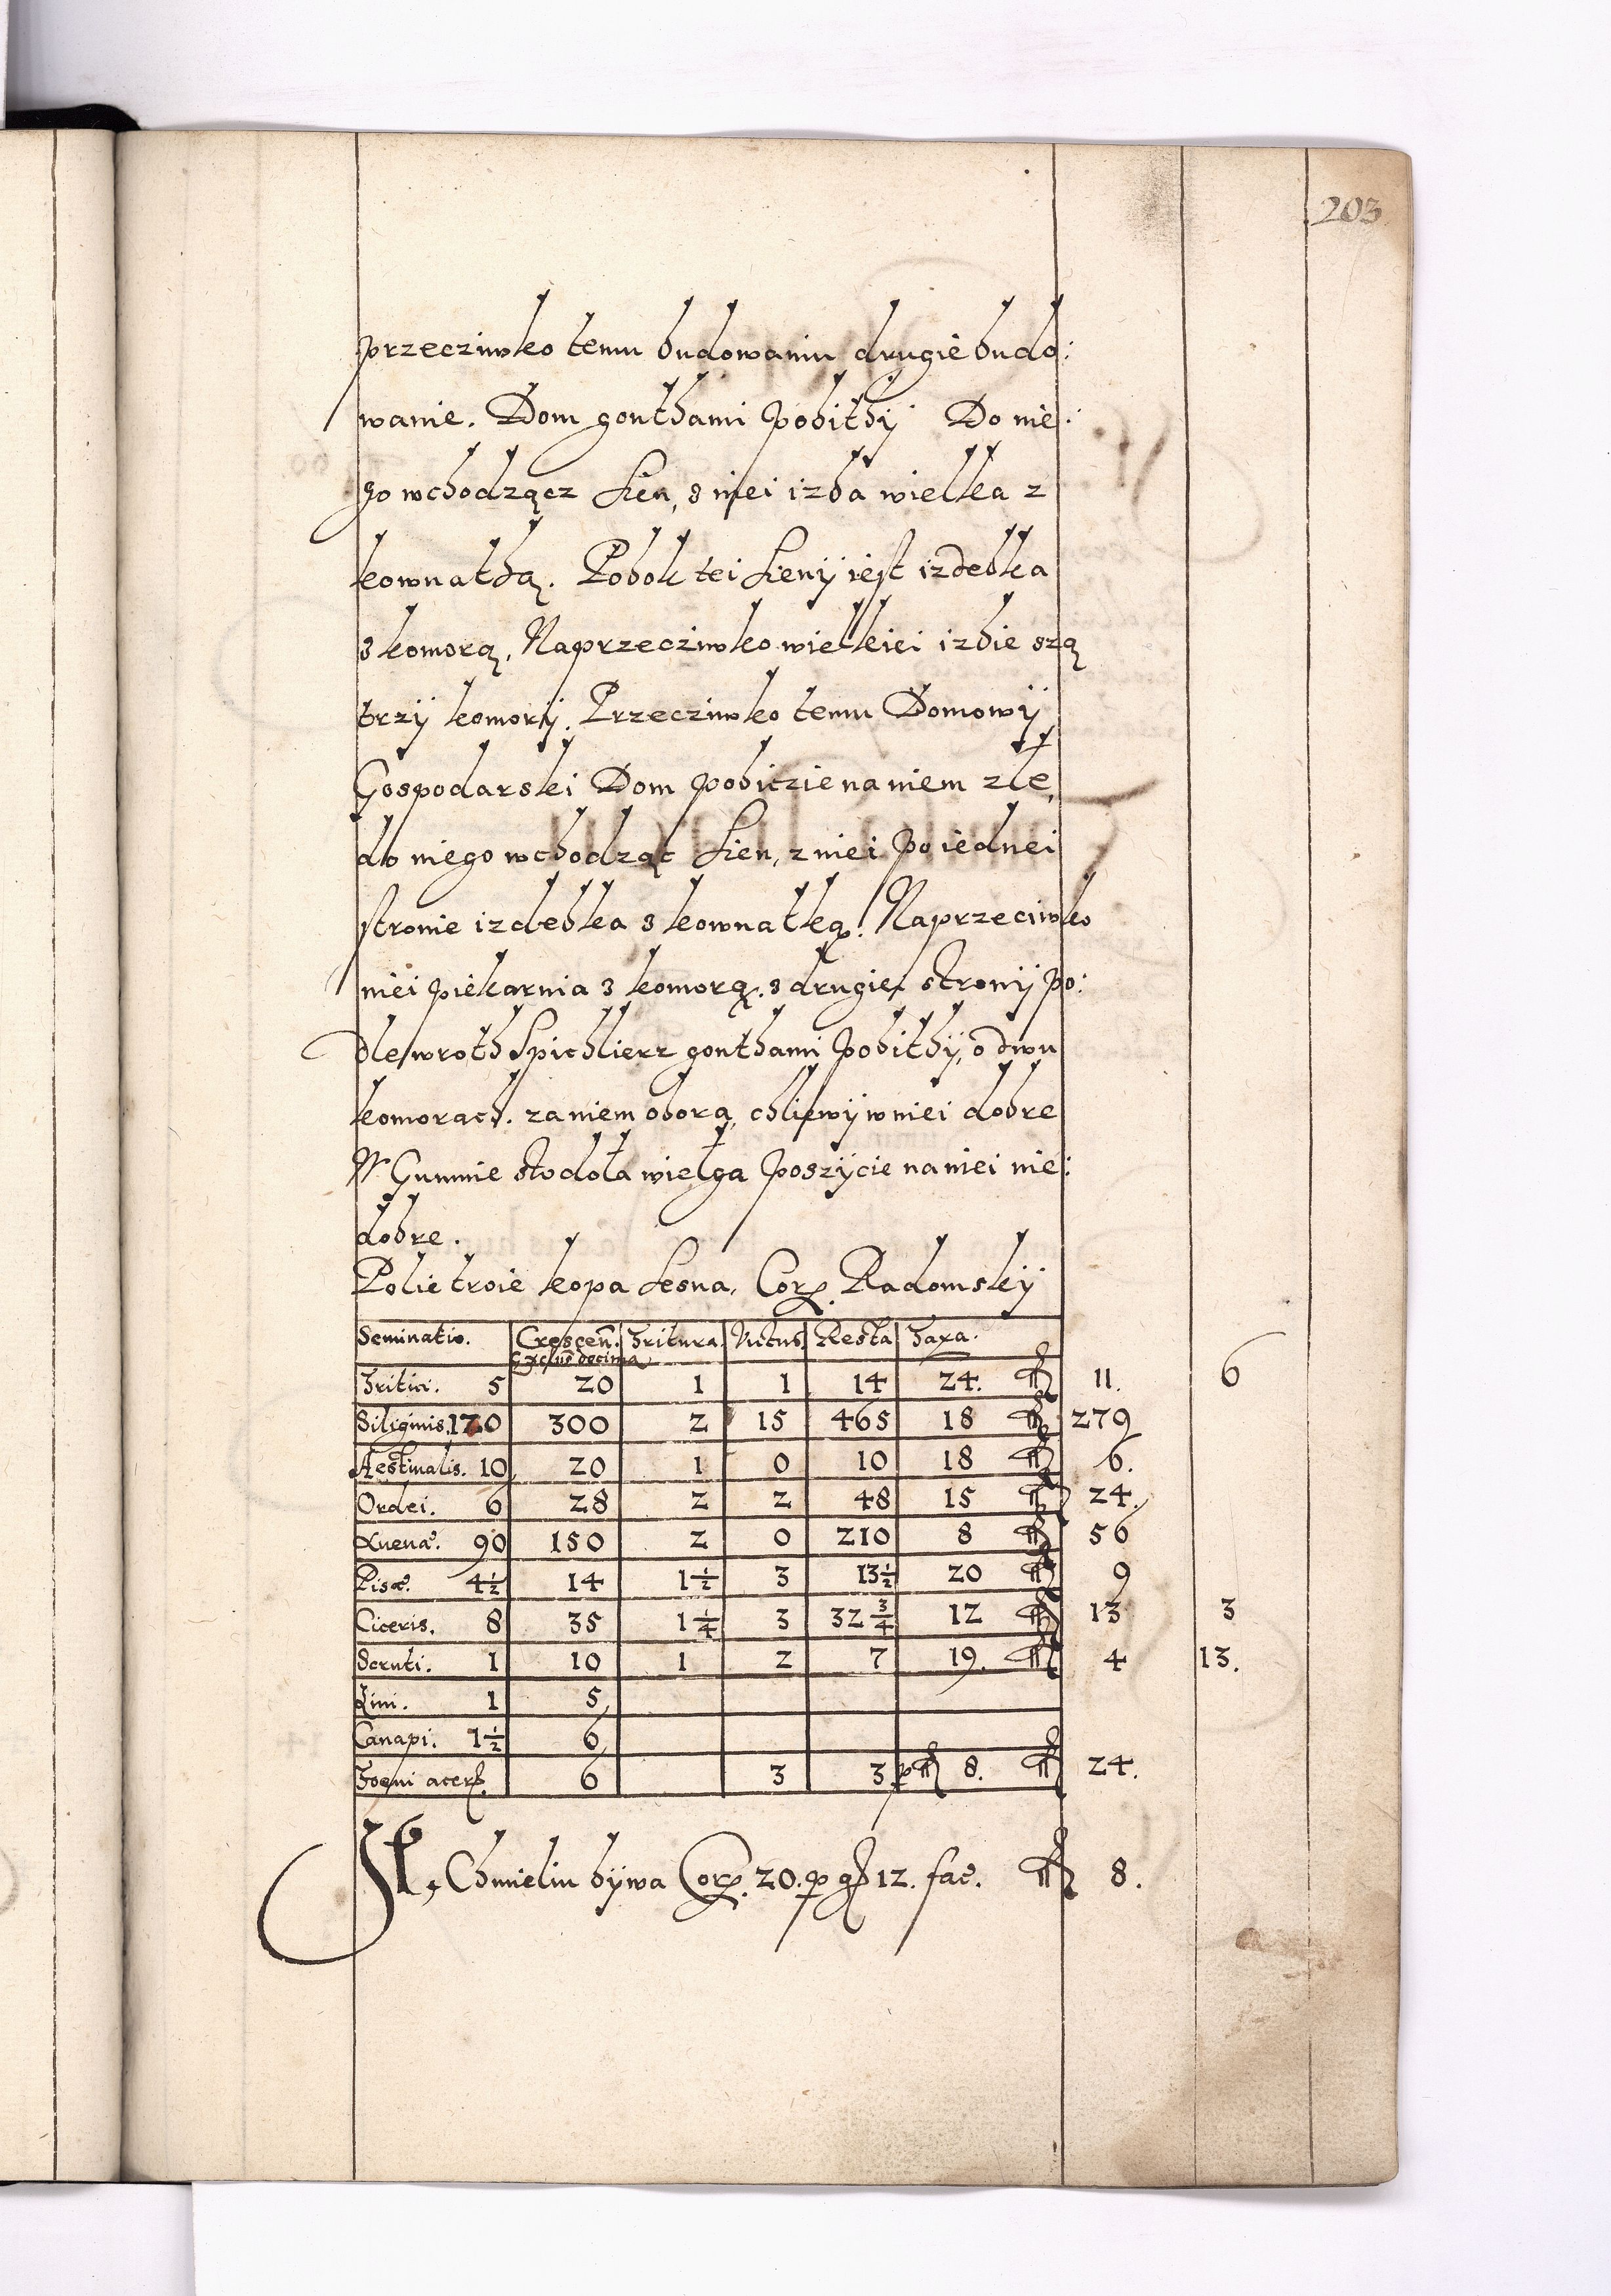 203
przecziwko temu budowaniu drugie budo:
wanie. Dom gonthami pobithy Do nie:
go wchodzącz Sien, z niei izba wielka z
kownathą. Pobok tei Sieny iest izdebka
z komorą. Naprzecziwko wielkiei izbie szą
trzy komory. Przecziwko temu Domowy
Gospodarski Dom pobiczie na niem złe,
do niego wchodząc Sien, z niei po iednei
stronie izdebka z kownatką. Naprzeciwko
niei piekarnia z komorą. z drugiei strony po:
dle wroth Spichlierz gonthami pobithy, o dwu
komorach. za niem obora, chliewy w niei dobre
W Gumnie stodoła wielga poszycie na niei nie:
dobre.
Polie troie kopa Lesna, Cor. Radomsky
Seminatio. Crescen. Exclus decima Tritura. Victus. Resta Taxa.
Tritici. 5 20 1 1 14 24. 11. 6
Siliginis. 170 300 2 15 465 18 279
Aestinalis. 10 20 1 0 10 18 6.
Ordei. 6 28 2 2 48 15 24.
Auenae. 90 150 2 0 210 8 56
Pisae. 4½ 14 1½ 3 13½ 20 9
Ciceris. 8 35 1¼ 3 32¾ 12 13 3
Scruti. 1 10 1 2 7 19. 4 13.
Lini. 1 5
Canapi. 1½ 6
Foeni 6 3 3 8. 24.
Chmieliu bywa Cor. 20. 12. fac. 8.